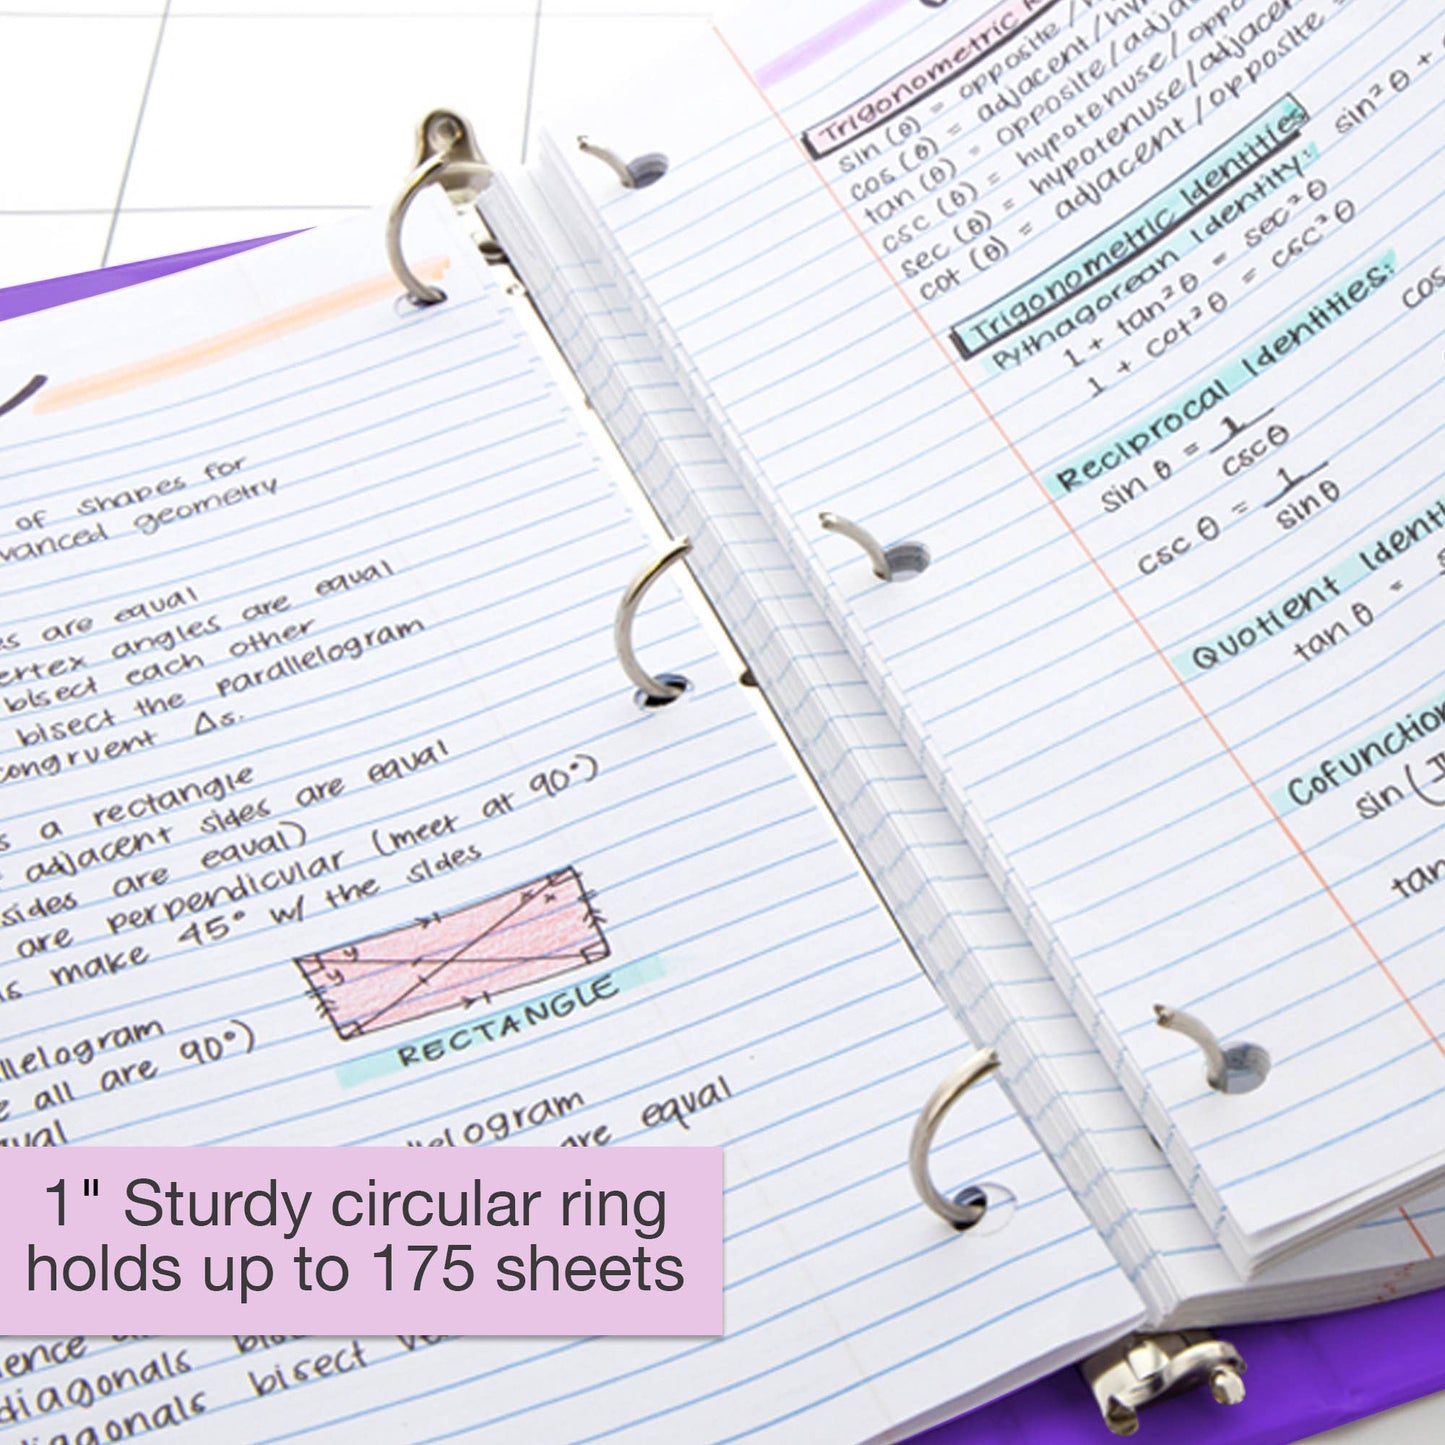 of shapes for
geometry
are equal
angles are equal
bisect each other
bisect the parallelogram
congruent Δs.
a rectangle
adjacent sides are equal
sides are equal)
are perpendicular (meet at 90°)
make 45° w/ the sides
RECTANGLE
all are 90°)
are equal
1" Sturdy circular ring
holds up to 175 sheets
diagonals
diagonals bisect
Trigonometric
sin (θ) = opposite /
cos (θ) = adjacent /
tan (θ) = opposite / 
csc (θ) = hypotenuse / 
sec (θ) = hypotenuse / adjacent
cot (θ) = adjacent / opposite
Trigonometric Identities
Pythagorean Identity:
sin²θ +
1 + tan²θ = sec²θ
1 + cot²θ = csc²θ
Reciprocal Identities:
sin θ = 1/cscθ
cos
csc θ = 1/sinθ
Quotient
tan θ =
sin (
tan